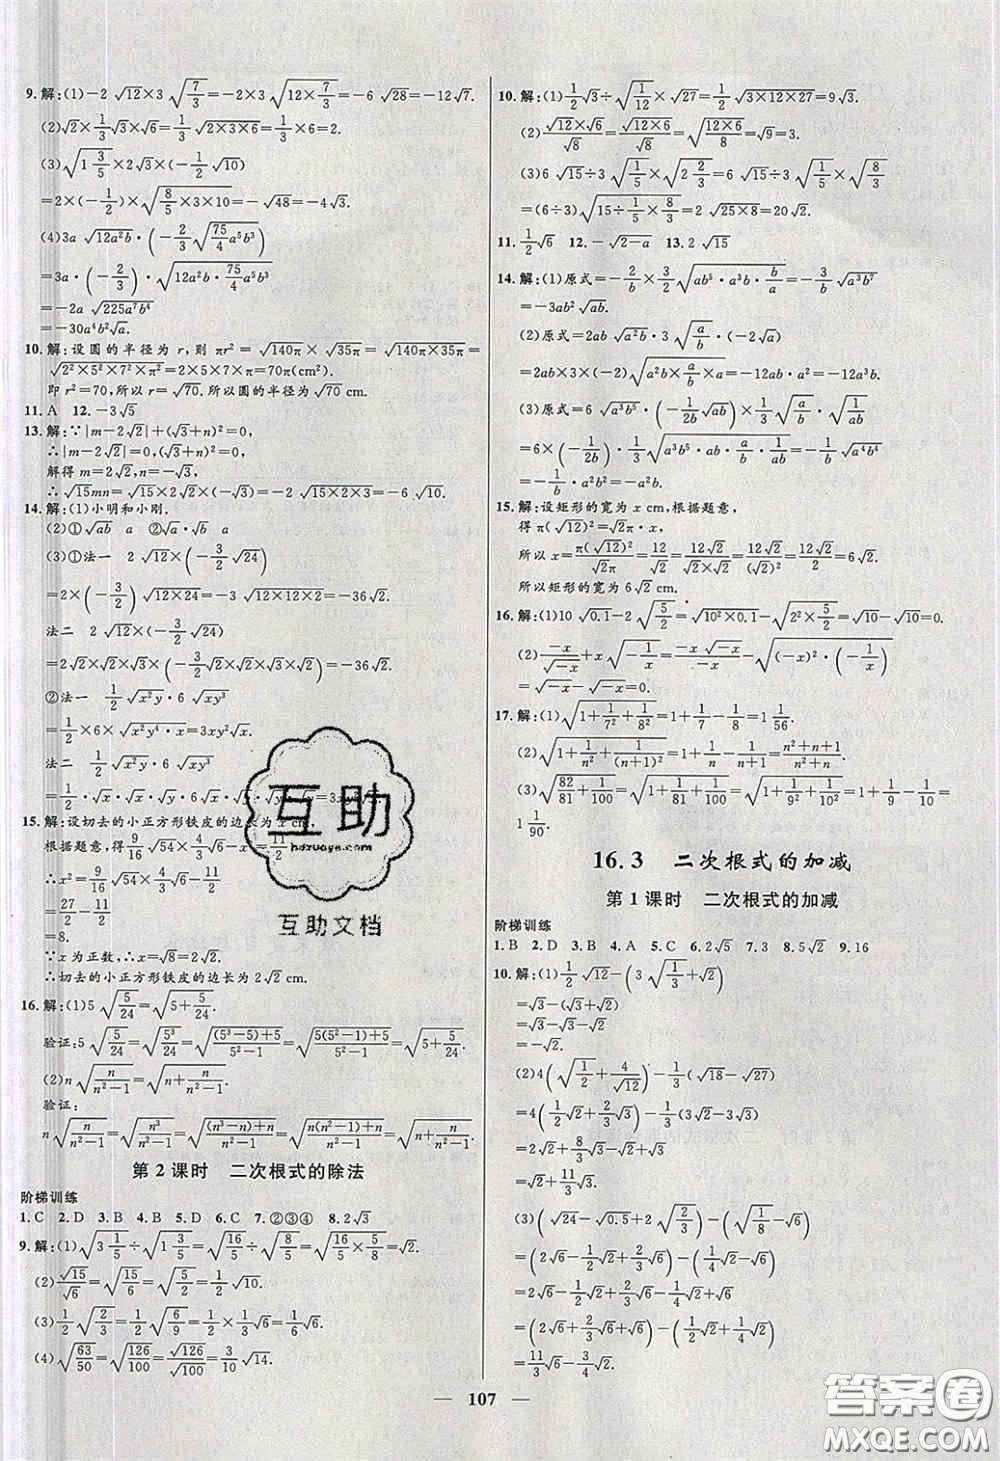 9.解:(1)-2√12×3√(7/3)=-2×3√(12×7/3)=-6√28=-12√7.
(2)√2×(1/3)√3×√6=(1/3)√(2×3×6)=(1/3)×6=2.
(3)√(1 3/5)×2√3×(-(1/2)√10)
=2×(-1/2)×√(8/5×3×10)=-√48=-4√3.
(4)3a√(12a²b)·(-(2/3)√((75/4)a⁵b³))
=3a·(-2/3)·√(12a²b·(75/4)a⁵b³)
=-2a√(225a⁷b⁴)
=-30a⁴b²√a.
10.解:设圆的半径为r,则πr²=√(140π)×√(35π)=√(140π×35π)=
√(2²×5²×7²×π²)=2×5×7×π=70π(cm²).
即r²=70,所以r=√70.所以圆的半径为√70 cm.
11.A 12.-3√5
13.解:∵|m-2√2|+(√3+n)²=0,
∴|m-2√2|=0,(√3+n)²=0,
解得m=2√2,n=-√3,
14.解:(1)小明和小刚.
(2)①√(ab) a ②√a·√b a
(3)①法一 2√12×(-(3/2)√24)
=2×(-3/2)√(12×24)=-3√(12×12×2)=-36√2.
法二 2√12×(-(3/2)√24)
=2√2×√2×√3×(-(3/2)√2×√2×√2×√3)=-36√2.
②法一 (1/2)√(x²y)·6√(xy³)
=(1/2)×6×√(x²y⁴·x)=3xy²√x.
法二 (1/2)√(x²y)·6√(xy³)
15.解:设切去的小正方形铁皮的边长为x cm,
∴x²=(9/16)√54×√(2/3)
=27/2-11/2
=8.
∵x为正数,∴x=√8=2√2.
∴切去的小正方形铁皮的边长为2√2 cm.
16.解:(1)5√(5/24)=√(5+5/24).
验证:5√(5/24)=√(5³/24)=√(((5³-5)+5)/(5²-1))=√((5(5²-1)+5)/(5²-1))=√(5+5/24).
(2)n√(n/(n²-1))=√(n+n/(n²-1)).
验证:
n√(n/(n²-1))=√(n³/(n²-1))=√(((n³-n)+n)/(n²-1))=√((n(n²-1)+n)/(n²-1))=√(n+n/(n²-1)).
第2课时 二次根式的除法
阶梯训练
1.C 2.D 3.B 4.B 5.D 6.C 7.②③④ 8.2√3
9.解:(1)√(3 1/5)÷√(1 3/5)=√(16/5)÷√(8/5)=√(16/5×5/8)=√2.
(2)√15/√6=√(15/6)=√(5/2)=(1/2)√10.
(3)(1/2)√(2/3)=(1/2)√(6/9)=(1/2)×(1/3)×√6=(1/6)√6.
(4)√(63/50)=√(126/100)=√126/√100=(3/10)√14.
10.解:(1)(1/2)√3÷√(1/12)×√27=(1/2)√(3×12×27)=9√3.
(2)(√12×√6)/√8=√(12×6)/√8=√((12×6)/8)=√9=3.
(3)6√15÷3√(1/5)×√(8/3)=(6÷3)√(15÷1/5)×√(8/3)
=(6÷3)√(15÷1/5×8/3)=2√(25×8)=20√2.
11.(1/2)√6 12.-√(2-a) 13.2√15
14.解:(1)原式=-(2/b)×(3/2)×√(ab⁵·a³b·b/a)=-(3/b)√(a³b⁷)
=-3ab²√(ab).
(3)原式=√(a³b⁵)·6√(a/b)·(-(1/2b)√(ab))×√(a/b)
=-(3/b)·a²b²=-3a²b.
15.解:设矩形的宽为x cm,根据题意,
得π(√12)²=√2π·x.
所以x=π(√12)²/(√2π)=12/√2=12√2/(√2)²=12√2/(√2×√2)=12√2/2=6√2.
所以矩形的宽为6√2 cm.
16.解:(1)10√0.1-2√(5/2)=√(10²×0.1)-√(2²×5/2)=√10-√10=0.
(2)-x/√(-x)+x√(-1/x)=(-x√(-x))/(-x)-√((-x)²·(-1/x))
=√(-x)-√(-x)=0.
17.解:(1)√(1+1/7²+1/8²)=1+1/7-1/8=1 1/56.
(2)√(1+1/n²+1/(n+1)²)=1+1/n-1/(n+1)=(n²+n+1)/(n²+n).
(3)√(82/81+1/100)=√(1+1/81+1/100)=√(1+1/9²+1/10²)=1+1/9-1/10=
1 1/90.
16.3 二次根式的加减
第1课时 二次根式的加减
阶梯训练
1.B 2.D 3.B 4.A 5.C 6.2√5 7.3 8.5√2 9.16
10.解:(1)(1/2)√12-(3√(1/3)+√2)
=√3-(√3+√2)
=√3-√3-√2
=-√2.
(2)4(√(1/2)+4/√12)-(√18-√27)
=4((1/2)√2+(2/3)√3)-(3√2-3√3)
=2√2+(8/3)√3-3√2+3√3
=(17/3)√3-√2.
(3)(√24-√0.5+2√(2/3))-(√(1/8)-√6)
=(2√6-(1/2)√2+(2/3)√6)-((1/4)√2-√6)
=2√6-(1/2)√2+(2/3)√6-(1/4)√2+√6
=(2√6+(2/3)√6+√6)-((1/2)√2+(1/4)√2)
=(11/3)√6-(3/4)√2.
107
互助
hdzuoye.com
互助文档
答案圈
MXQE.COM